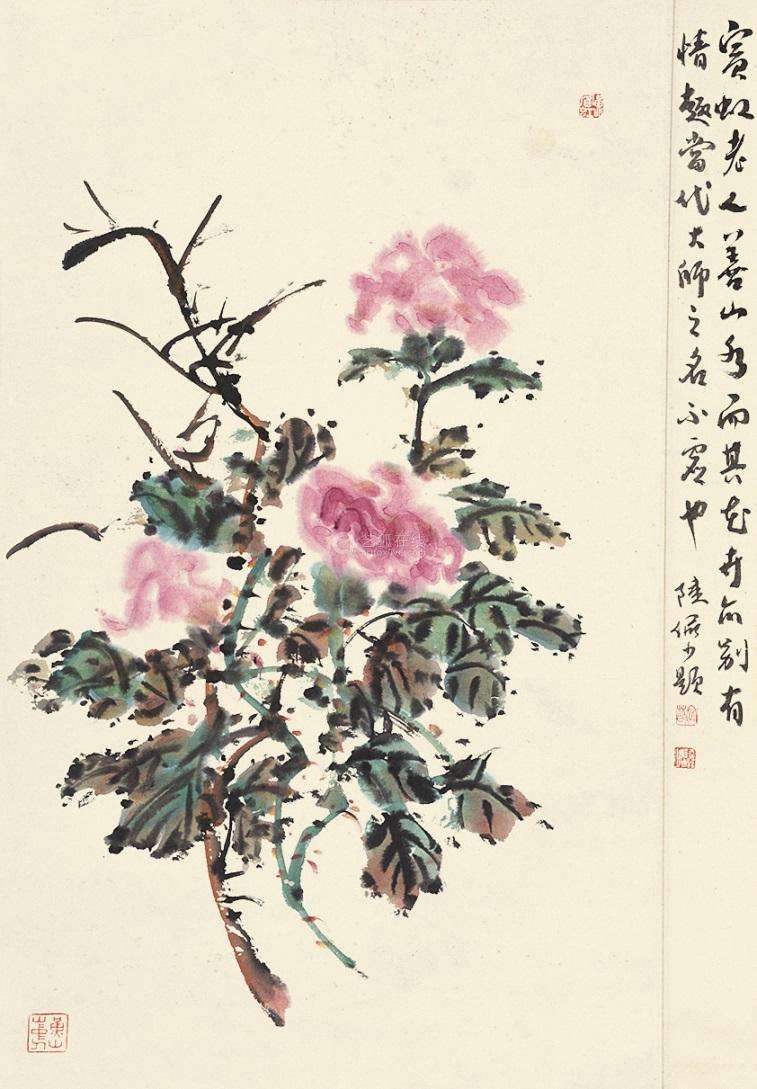 賓虹老人善山水而其花卉亦别有
情趣當代大師之名不虛也
陸儼少題